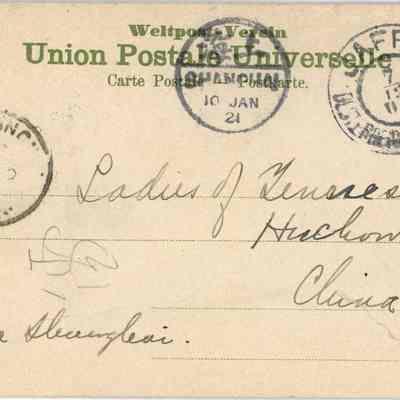 Weltpost-Verein
Union Postale Universelle
Carte Postale Postkarte.
SHANGHAI
10 JAN
21
JAFF
Ladies of Tennes
Huchow
China
Shanghai.